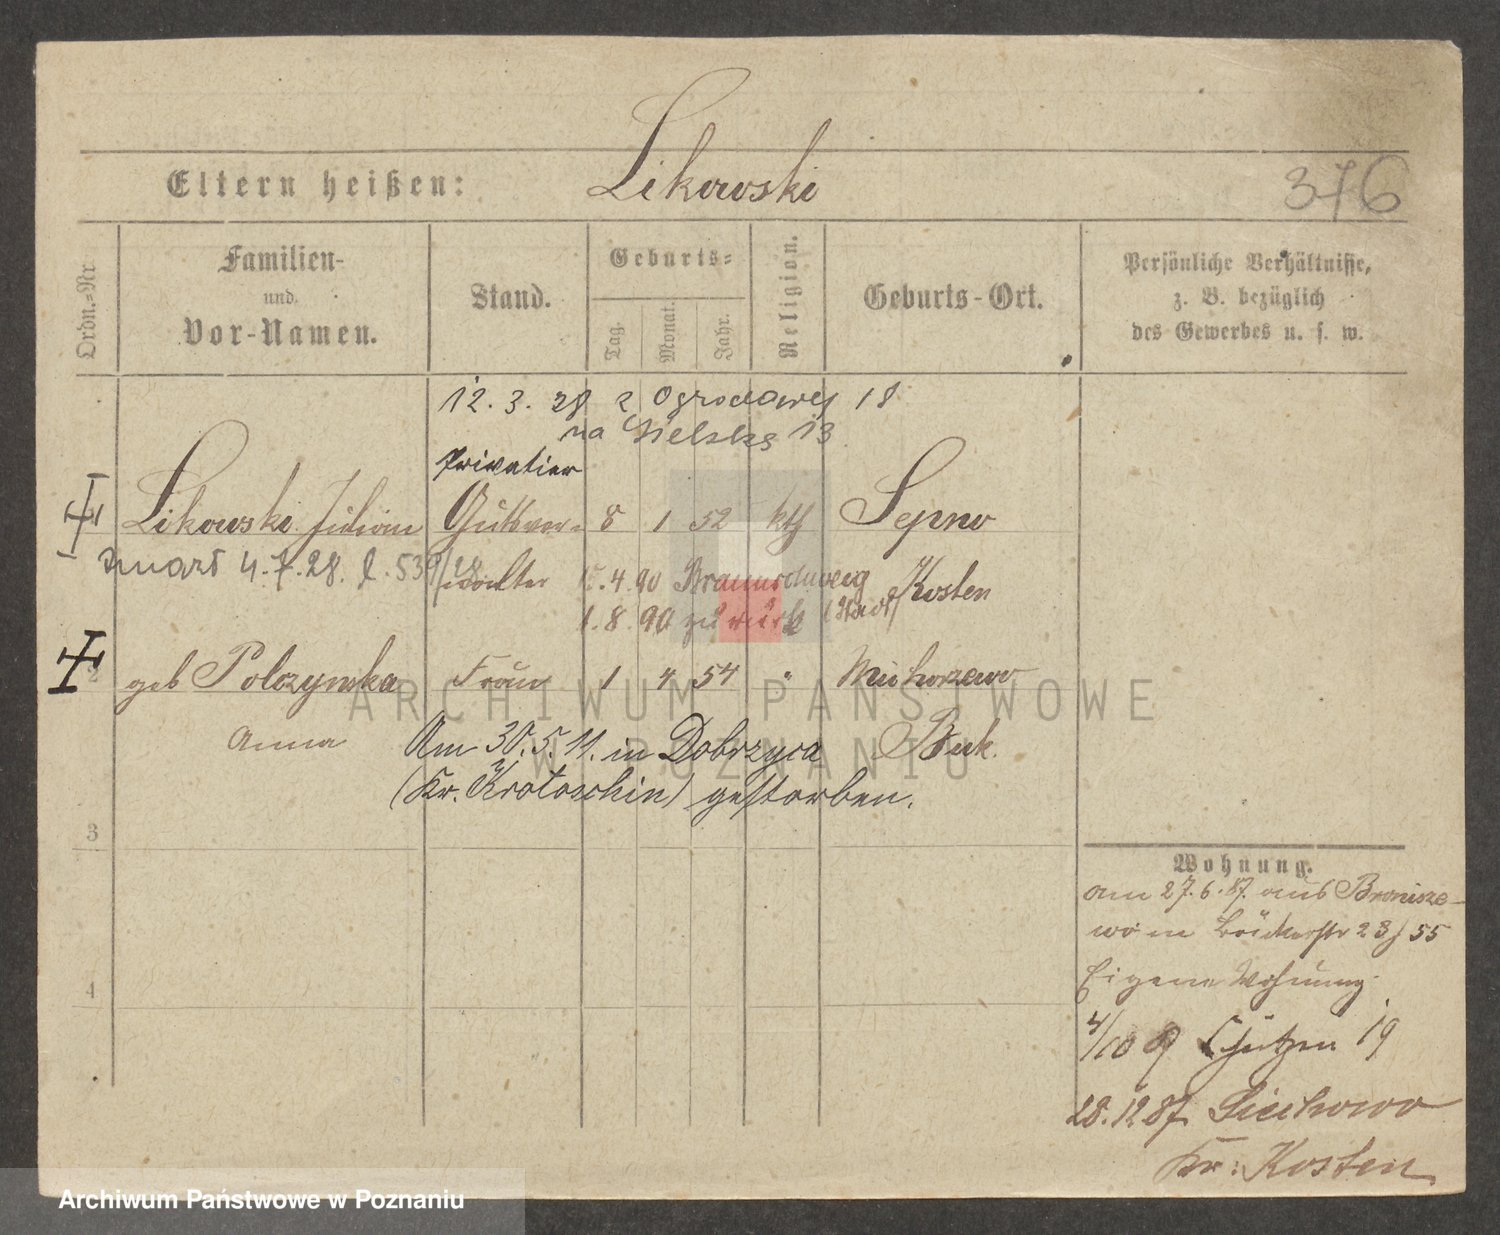 Eltern heißen: Likowski 376
Ordn.-Nr.
Familien-
und
Vor-Namen.
Stand.
Geburts-
Tag. Monat. Jahr.
Religion.
Geburts-Ort.
Persönliche Verhältnisse,
z. B. bezüglich
des Gewerbes u. s. w.
12. 3. 28 z Ogrodowej 18
na 13
Privatier
Likowski Julian Gutsver- 8 1 52 kth Sepno
zmarł 4.7.28. l. 539/28
walter 4. 90 Braunschweig Kosten
1. 8. 90 zurück (Stadt)
2 geb Polczynska Frau 1 4 54 " Michorzewo
Anna
Am 30. 5. 11. in Dobrzyca Buk.
(Kr. Krotoschin) gestorben.
3
4
Wohnung.
am 27. 6. 87. aus Bronisze-
wo in 23/55
Eigene Wohnung.
4/10 Schützen 19
28. 12 87 Siekowo
Kr: Kosten
ARCHIWUM PAŃSTWOWE
W POZNANIU
Archiwum Państwowe w Poznaniu